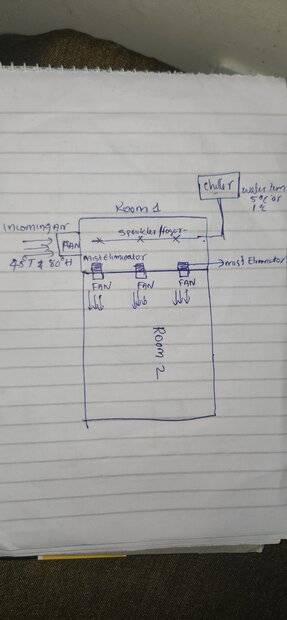 chiller
water tem
5°C or
1°c
Room 1
Incoming Air
FAN
Sprinkler/foger
45°T & 80°H
Mist Eliminator
mist Eliminator
FAN
FAN
FAN
Room 2